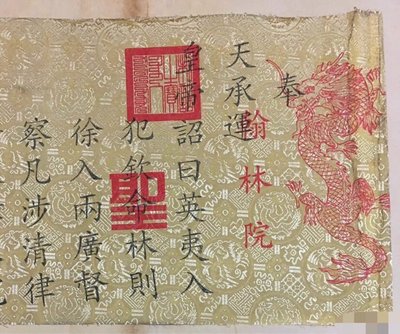 奉
翰林院
天承運
皇帝詔曰英夷入
犯欽命林則
聖
徐入兩廣督
察凡涉清律